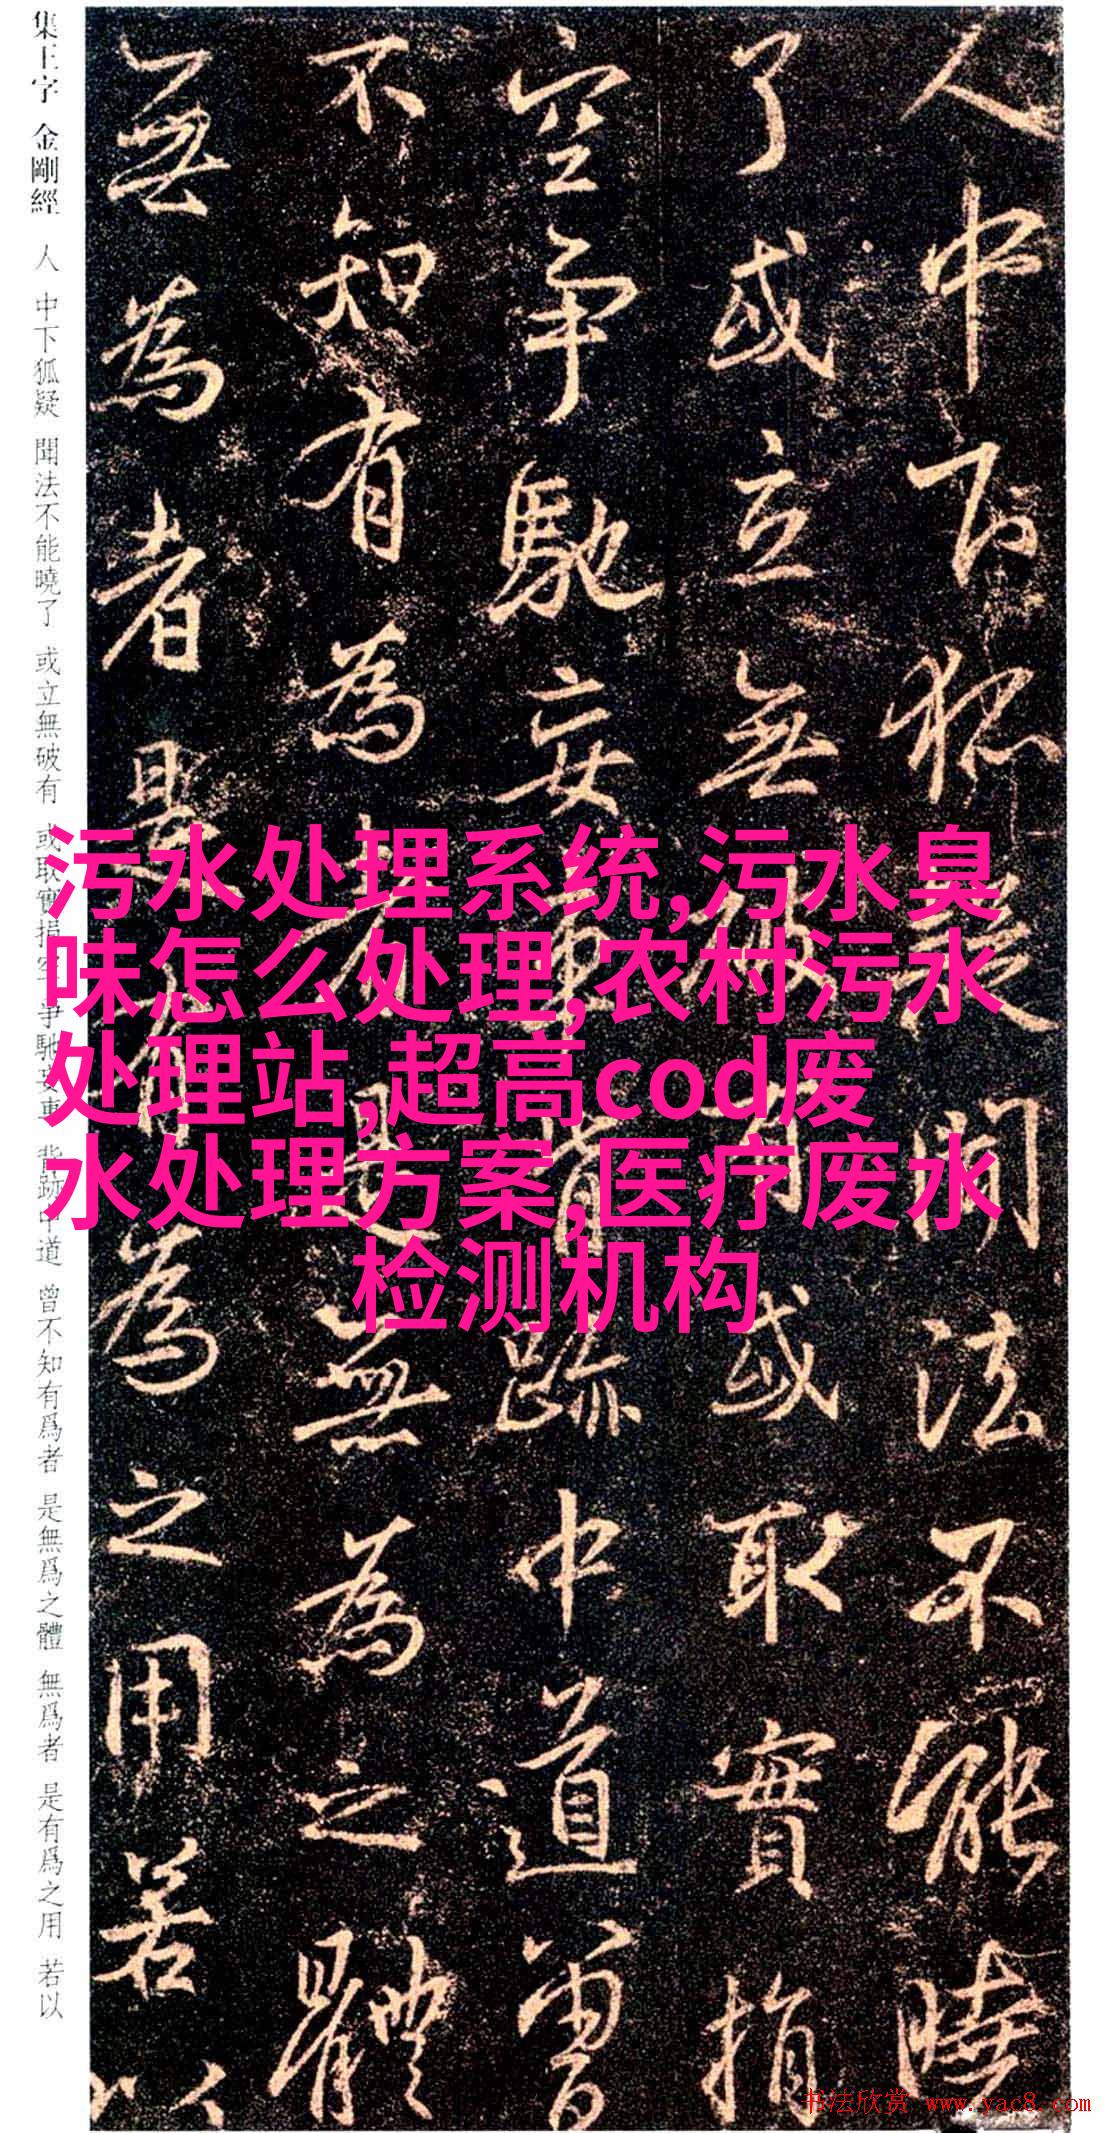 集王字 金剛經 人 中下狐疑 聞法不能曉了 或立無破有 或取實捐空 爭馳妄車 背跡中道 曾不知有爲者 是無爲之體 無爲者 是有爲之用 若以
人中下狐疑聞法不能曉
了或立無破有或取實捐
空爭馳妄車背跡中道曾
不知有為者是無為之體
無為者是有為之用若以
污水处理系统,污水臭
味怎么处理,农村污水
处理站,超高cod废
水处理方案,医疗废水
检测机构
书法欣赏 www.yac8.com